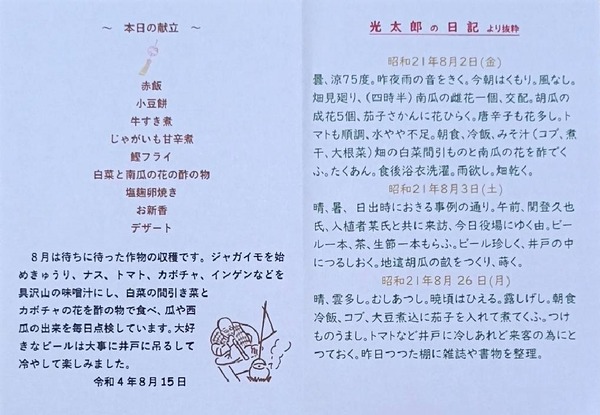 ～ 本日の献立 ～
赤飯
小豆餅
牛すき煮
じゃがいも甘辛煮
鰹フライ
白菜と南瓜の花の酢の物
塩麹卵焼き
お新香
デザート
８月は待ちに待った作物の収穫です。ジャガイモを始
めきゅうり、ナス、トマト、カボチャ、インゲンなどを
具沢山の味噌汁にし、白菜の間引き菜と
カボチャの花を酢の物で食べ、瓜や西
瓜の出来を毎日点検しています。大好
きなビールは大事に井戸に吊るして
冷やして楽しみました。
令和４年８月１５日
光太郎の日記より抜粋
昭和21年8月2日(金)
曇、涼75度。昨夜雨の音をきく。今朝はくもり。風なし。
畑見廻り、(四時半)南瓜の雌花一個、交配。胡瓜の
成花5個、茄子さかんに花ひらく。唐辛子も花多し。ト
マトも順調、水やや不足。朝食、冷飯、みそ汁(コブ、煮
干、大根菜)畑の白菜間引ものと南瓜の花を酢でく
ふ。たくあん。食後浴衣洗濯。雨欲し。畑乾く。
昭和21年8月3日(土)
晴、暑、日出時におきる事例の通り。午前、関登久也
氏、入植者某氏と共に来訪、今日役場にゆく由。ビ
ール一本、茶、生節一本もらふ。ビール珍しく、井戸の中
につるしおく。地這胡瓜の畝をつくり、蒔く。
昭和21年8月26日(月)
晴、雲多し。むしあつし。暁頃はひえる。露しげし。朝食
冷飯、コブ、大豆煮込に茄子を入れて煮てくふ。つけ
ものうまし。トマトなど井戸に冷しあれど来客の為にと
つておく。昨日つつた棚に雑誌や書物を整理。